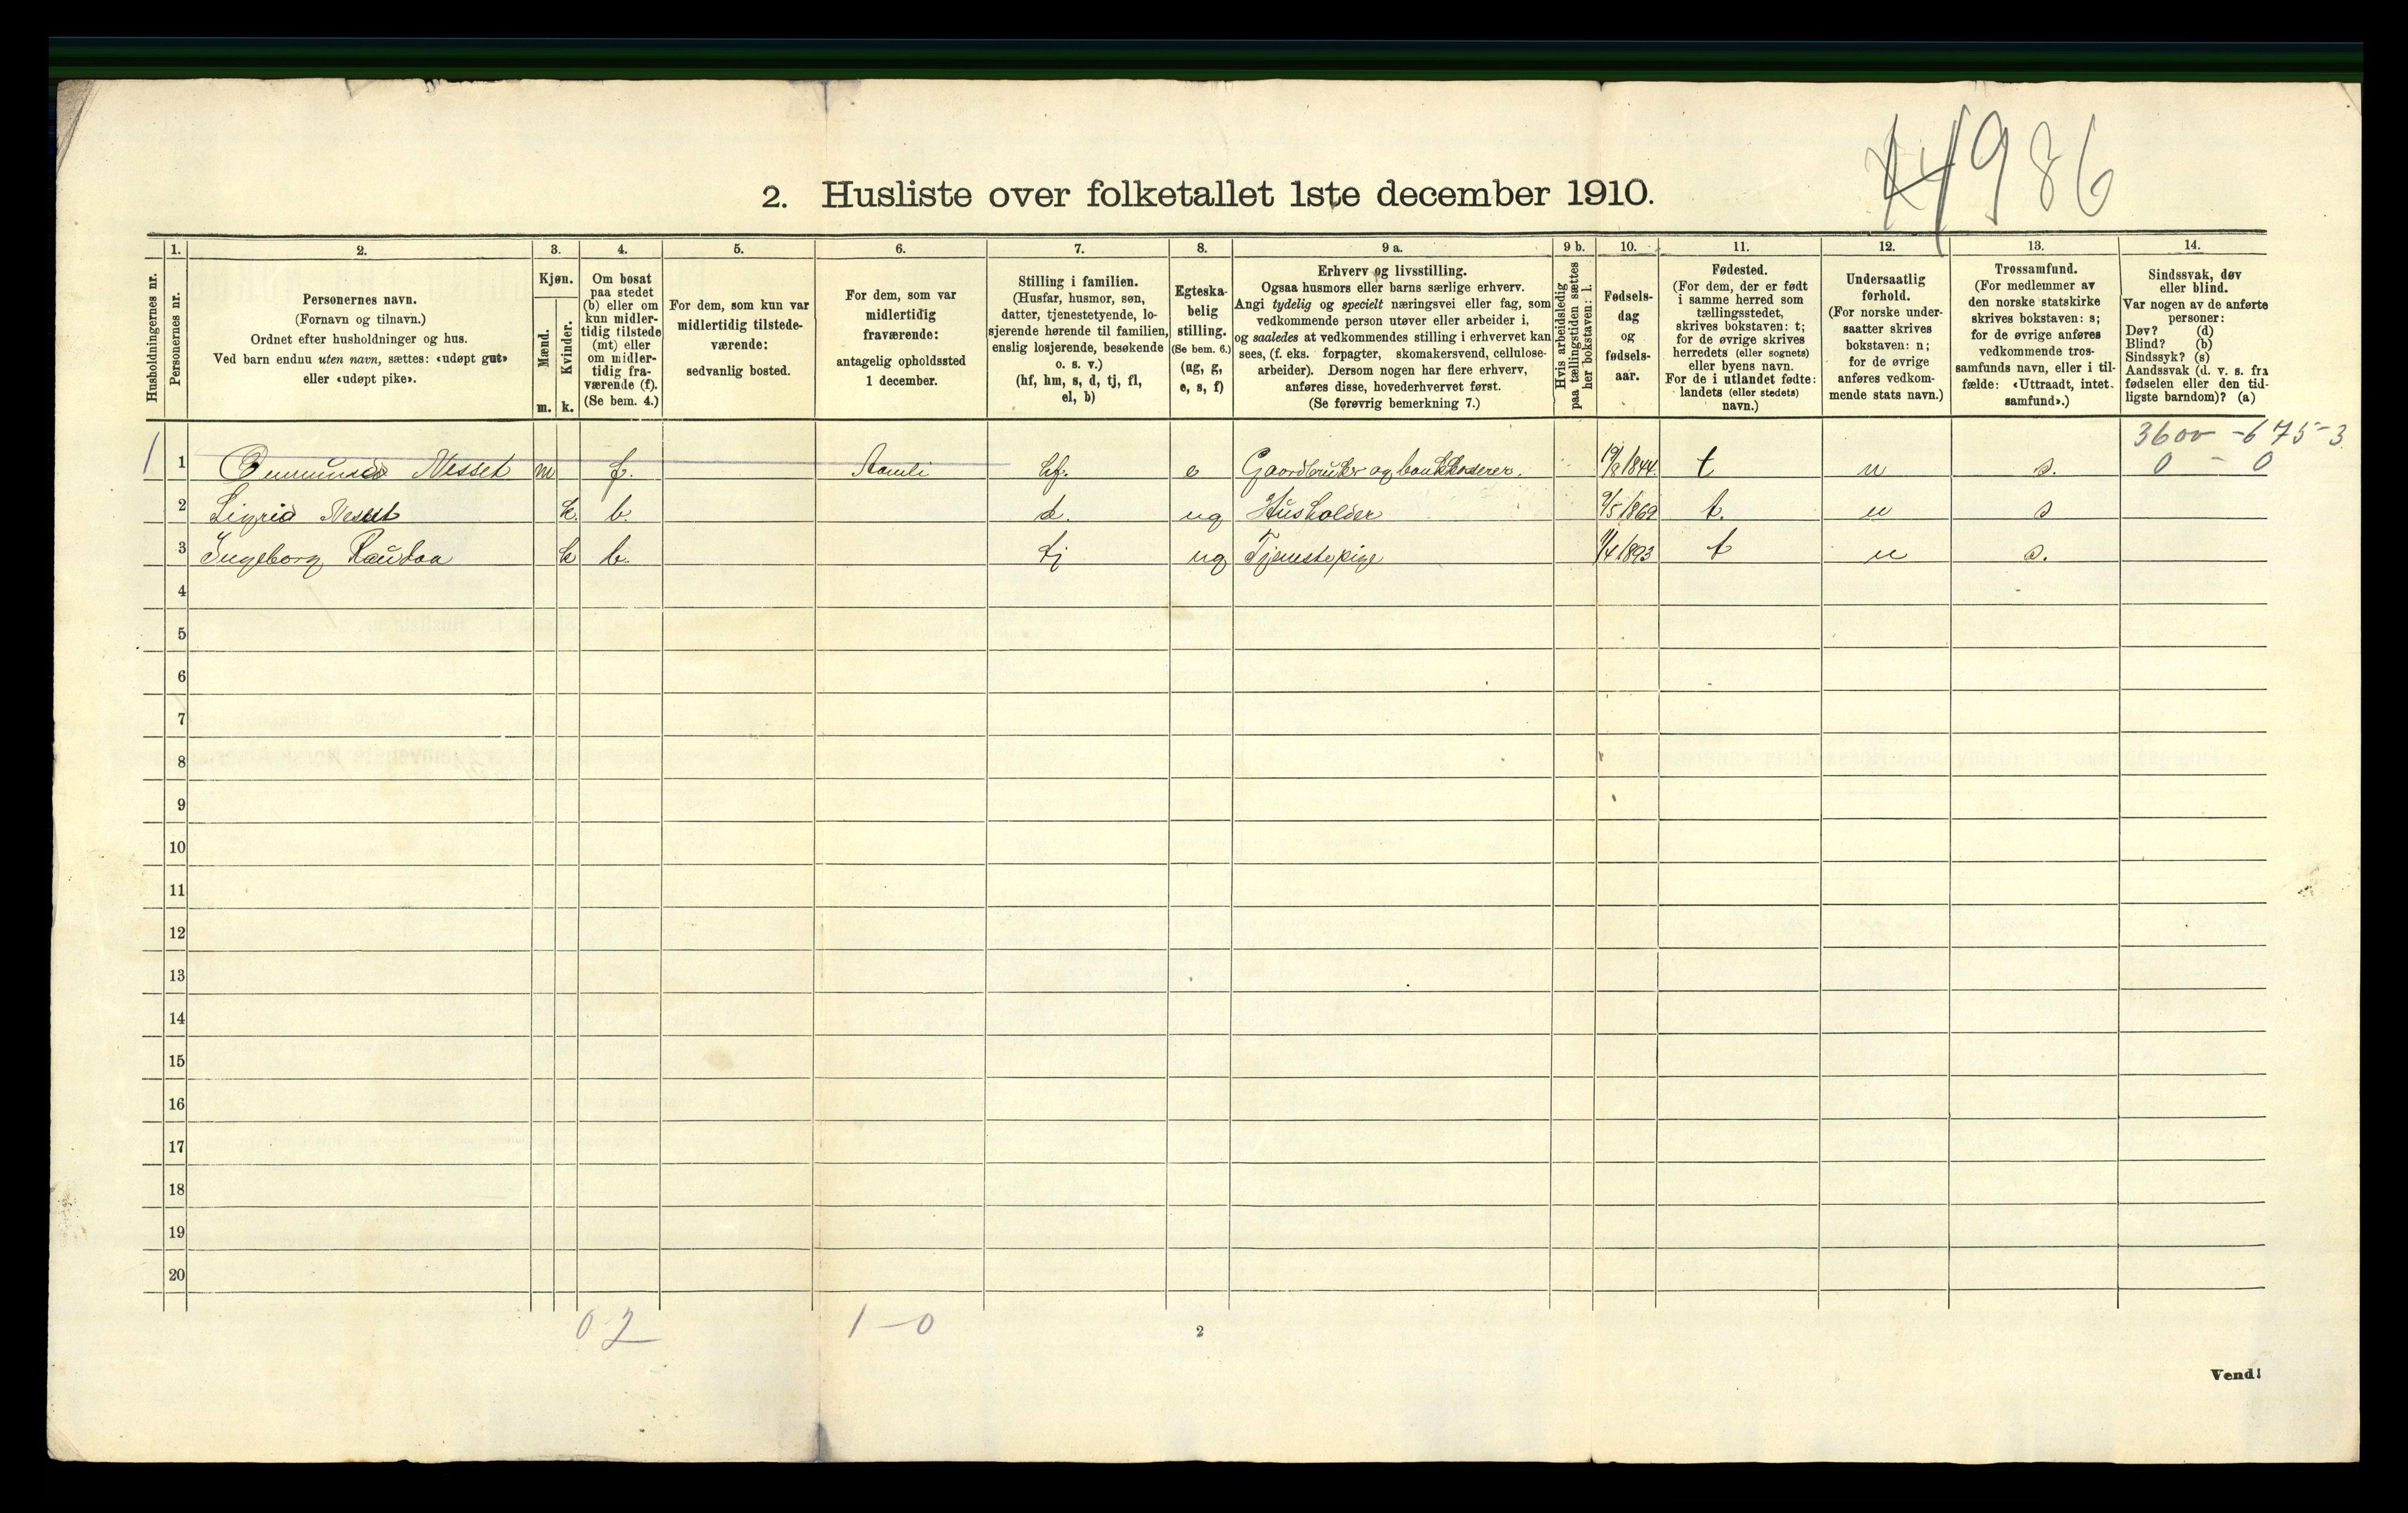 986
2. Husliste over folketallet 1ste december 1910.
Husholdningernes nr.
1.
Personernes nr.
2.
Personernes navn.
(Fornavn og tilnavn.)
Ordnet efter husholdninger og hus.
Ved barn endnu uten navn, sættes: «udøpt gut»
eller «udøpt pike».
3.
Kjøn.
Mænd.
m.
Kvinder.
k.
4.
Om bosat
paa stedet
(b) eller om
kun midler-
tidig tilstede
(mt) eller
om midler-
tidig fra-
værende (f).
(Se bem. 4.)
5.
For dem, som kun var
midlertidig tilstede-
værende:
sedvanlig bosted.
6.
For dem, som var
midlertidig
fraværende:
antagelig opholdssted
1 december.
7.
Stilling i familien.
(Husfar, husmor, søn,
datter, tjenestetyende, lo-
sjerende hørende til familien,
enslig losjerende, besøkende
o. s. v.)
(hf, hm, s, d, tj, fl,
el, b)
8.
Egteska-
belig
stilling.
(Se bem. 6.)
(ug, g,
e, s, f)
9 a.
Erhverv og livsstilling.
Ogsaa husmors eller barns særlige erhverv.
Angi tydelig og specielt næringsvei eller fag, som
vedkommende person utøver eller arbeider i,
og saaledes at vedkommendes stilling i erhvervet kan
sees, (f. eks. forpagter, skomakersvend, cellulose-
arbeider). Dersom nogen har flere erhverv,
anføres disse, hovederhvervet først.
(Se forøvrig bemerkning 7.)
9 b.
Hvis arbeidsledig
paa tællingstiden sættes
her bokstaven: l.
10.
Fødsels-
dag
og
fødsels-
aar.
11.
Fødested.
(For dem, der er født
i samme herred som
tællingsstedet,
skrives bokstaven: t;
for de øvrige skrives
herredets (eller sognets)
eller byens navn.
For de i utlandet fødte:
landets (eller stedets)
navn.)
12.
Undersaatlig
forhold.
(For norske under-
saatter skrives
bokstaven: n;
for de øvrige
anføres vedkom-
mende stats navn.)
13.
Trossamfund.
(For medlemmer av
den norske statskirke
skrives bokstaven: s;
for de øvrige anføres
vedkommende tros-
samfunds navn, eller i til-
fælde: «Uttraadt, intet
samfund».)
14.
Sindssvak, døv
eller blind.
Var nogen av de anførte
personer:
Døv? (d)
Blind? (b)
Sindssyk? (s)
Aandssvak (d. v. s. fra
fødselen eller den tid-
ligste barndom)? (a)
3600 - 675-3
1 1 Nesset m f. Aamli hf. e Gaardbruker og bankkaserer. 19/8 1844 t n s. 0 - 0
2 Sigrid Nesset k. b. d. ug Husholder 9/5 1869 t. n s
3 Ingeborg k b. tj ug Tjenestepige 1/4 1893 t n s.
4
5
6
7
8
9
10
11
12
13
14
15
16
17
18
19
20
0 2 1 - 0
2
Vend!